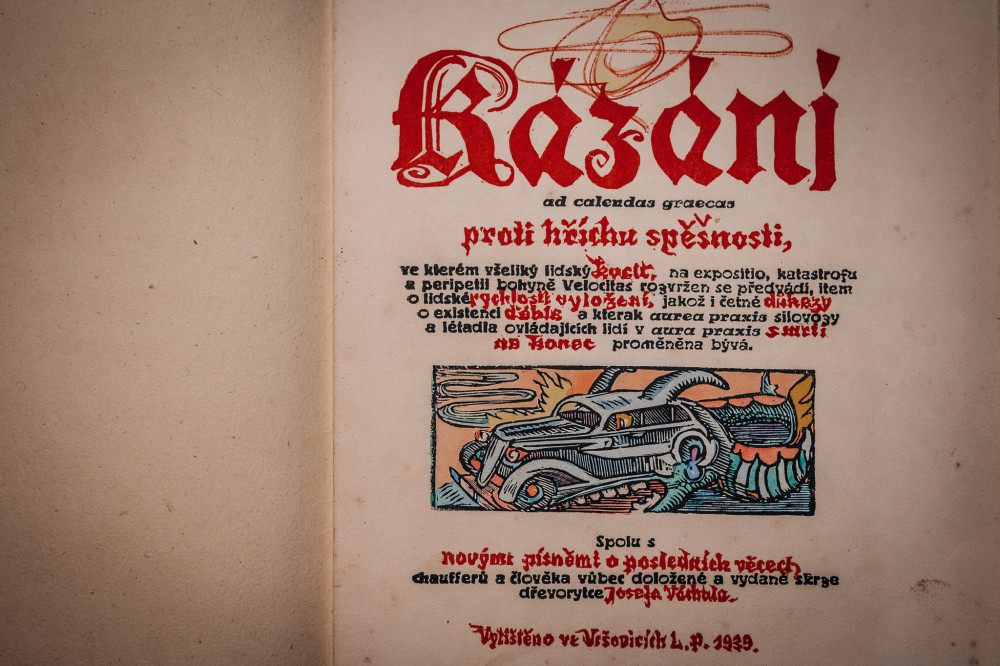 Kázání
ad calendas graecas
proti hříchu spěšnosti,
ve kterém všeliký lidský kvclt, na expositio, katastrofu
a peripetii bohyně Velocitas rozvržen se předvádí, item
o lidské rychlosti vyložení, jakož i četné důkazy
o existenci ďábla a kterak aurea praxis silovozy
a létadla ovládajících lidí v aura praxis smrti
na konec proměněna bývá.
Spolu s
novými písněmi o posledních věcech
chaufferů a člověka vůbec doložené a vydané skrze
dřevorytce Josefa Váchala.
Vytištěno ve Vršovicích L. P. 1939.